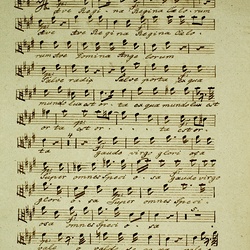 Ave Regina Regina Cælorum
ave ave Regina Regina Cælo-
rum Ave Domina Angelorum
Salve radix Salve porta Ex qua
mundo lux est orta ex qua mundo lux est
orta est or - - - ta est or-
ta Gaude virgo glori o sa
Super omnes speci o sa Gaude virgo
glori o sa Super omnes Speci -
osa omnes Speci - - osa
vale